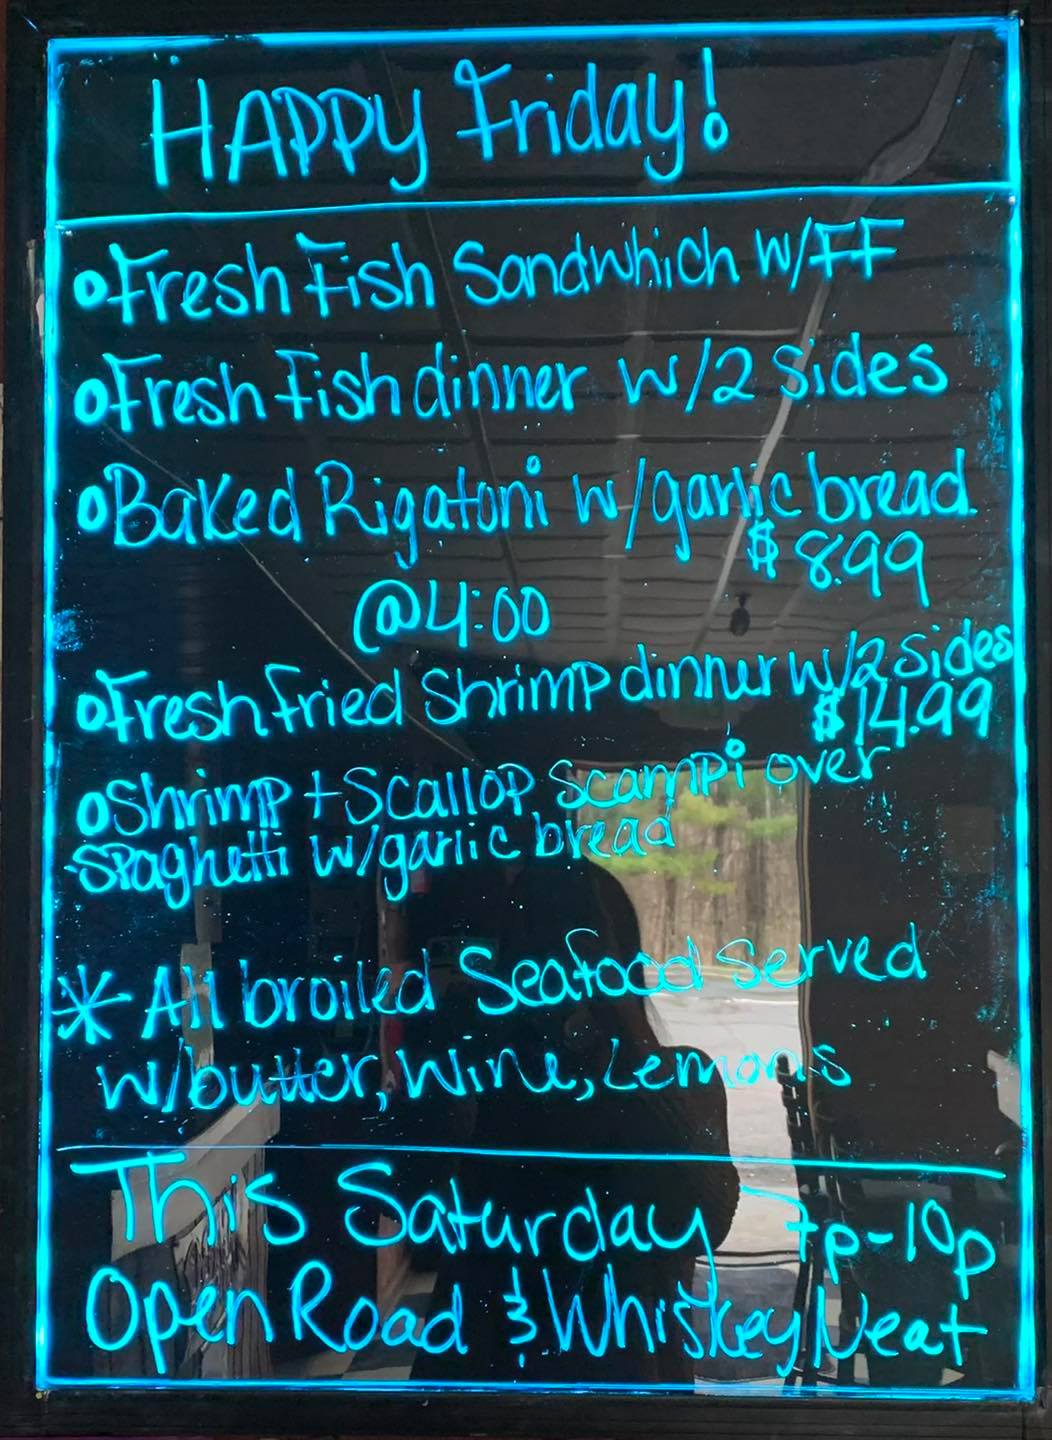 HAPPY Friday!
Fresh Fish Sandwhich W/FF
Fresh Fish dinner W/2 Sides
Baked Rigatoni w/garlic bread
$8.99
@4:00
Fresh Fried Shrimp dinner w/2 Sides
$14.99
Shrimp + Scallop Scampi over
Spaghetti w/garlic bread
* All broiled Seafood Served
w/butter, Wine, Lemons
This Saturday 7p-10p
Open Road & Whiskey Neat